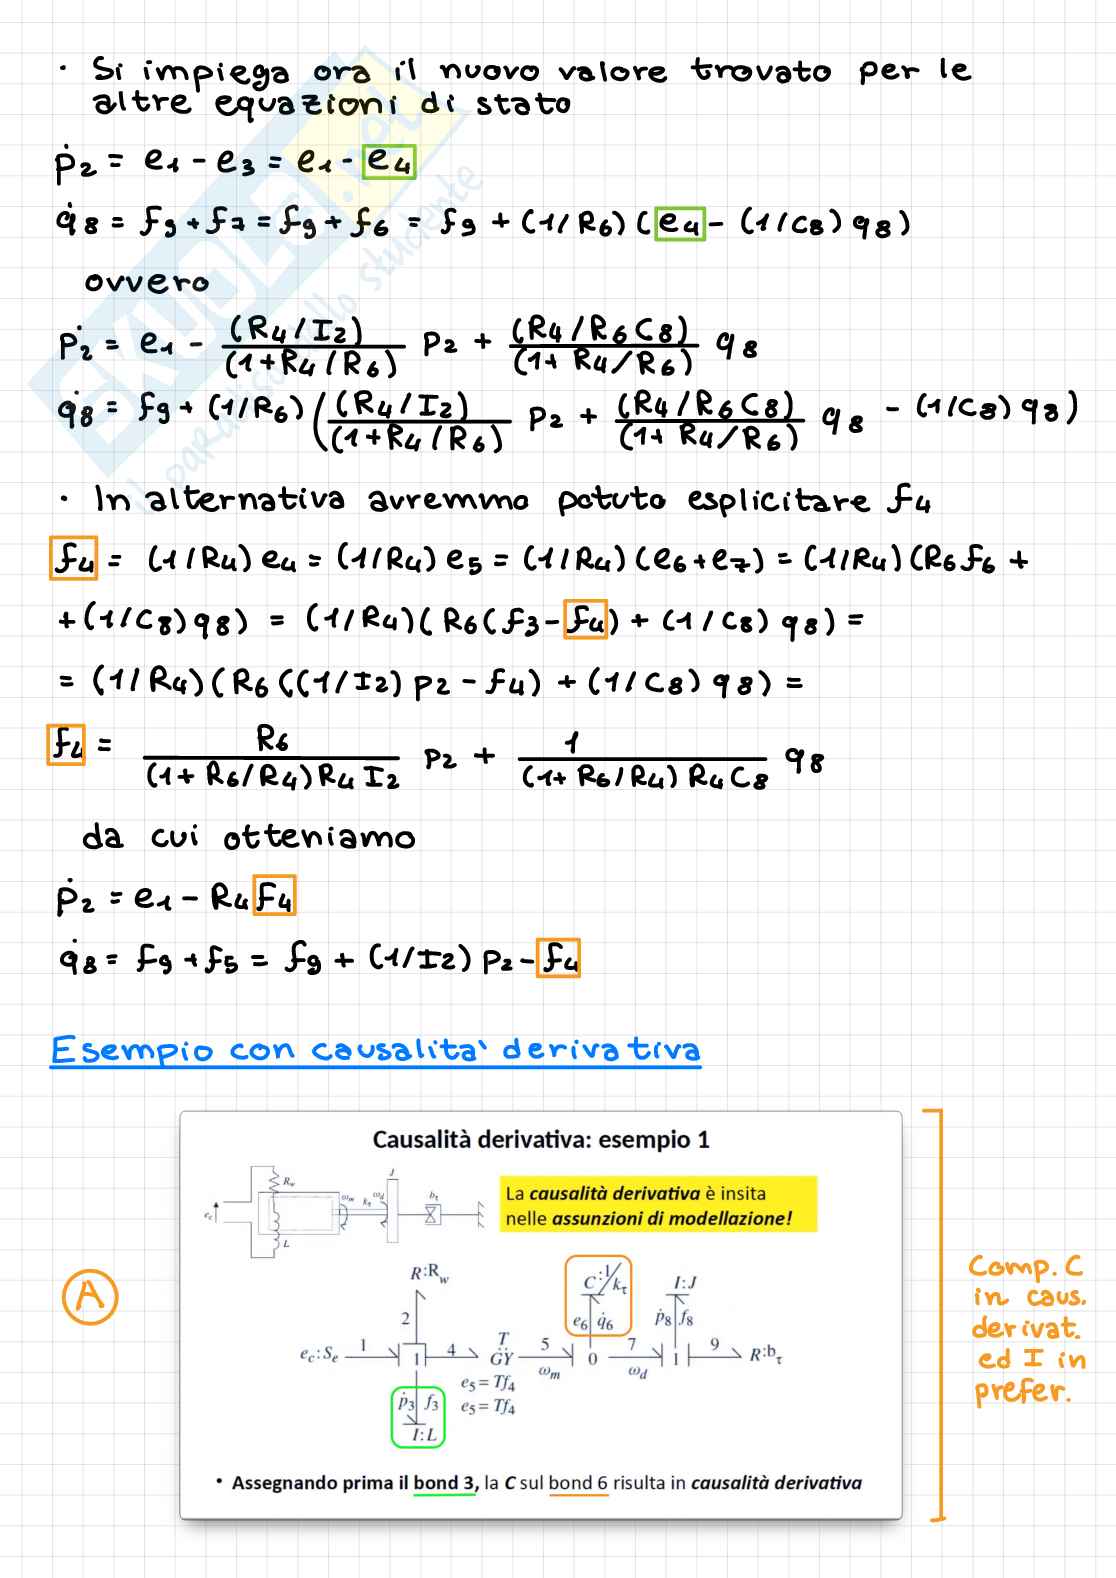 · Si impiega ora il nuovo valore trovato per le
altre equazioni di stato
ṗ2 = e1 - e3 = e1 - e4
q̇8 = f9 + f7 = f9 + f6 = f9 + (1/R6) (e4 - (1/C8) q8)
ovvero
ṗ2 = e1 - (R4/I2)/(1+R4/R6) p2 + (R4/R6C8)/(1+R4/R6) q8
q̇8 = f9 + (1/R6) ((R4/I2)/(1+R4/R6) p2 + (R4/R6C8)/(1+R4/R6) q8 - (1/C8) q8)
· In alternativa avremmo potuto esplicitare f4
f4 = (1/R4) e4 = (1/R4) e5 = (1/R4) (e6+e7) = (1/R4) (R6 f6 +
+ (1/C8) q8) = (1/R4) (R6 (f3 - f4) + (1/C8) q8) =
= (1/R4) (R6 ((1/I2) p2 - f4) + (1/C8) q8) =
f4 = R6/(1+R6/R4)R4I2 p2 + 1/(1+R6/R4)R4C8 q8
da cui otteniamo
ṗ2 = e1 - R4 f4
q̇8 = f9 + f5 = f9 + (1/I2) p2 - f4
Esempio con causalita' derivativa
Causalità derivativa: esempio 1
La causalità derivativa è insita
nelle assunzioni di modellazione!
Rw
L
ec
ωm
kτ
ωd
J
bτ
A
R:Rw
2
ec:Se
1
1
4
T
G̈Y
5
ωm
0
7
ωd
1
9
R:bτ
C:1/kτ
e6 q̇6
I:J
ṗ8 f8
e5 = Tf4
e5 = Tf4
ṗ3 f3
I:L
• Assegnando prima il bond 3, la C sul bond 6 risulta in causalità derivativa
Comp. C
in caus.
derivat.
ed I in
prefer.
SKUOLA.net
il paradiso dello studente